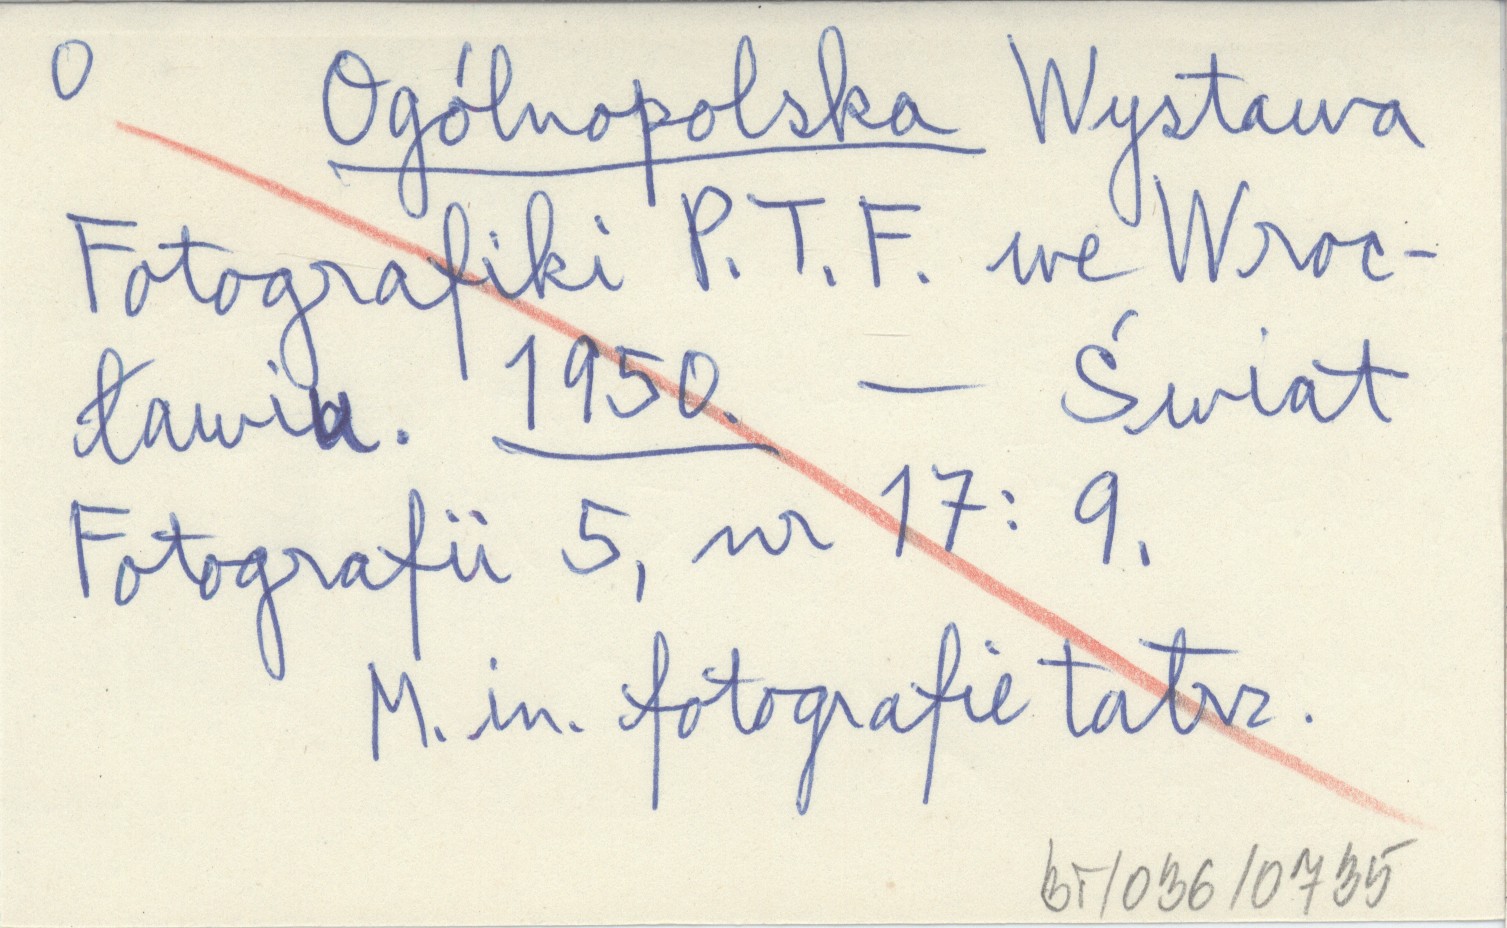 O Ogólnopolska Wystawa
Fotografiki P.T.F. we Wroc-
ławiu. 1950. — Świat
Fotografii 5, nr 17: 9.
M. in. fotografie tatrz.
BT/036/0735